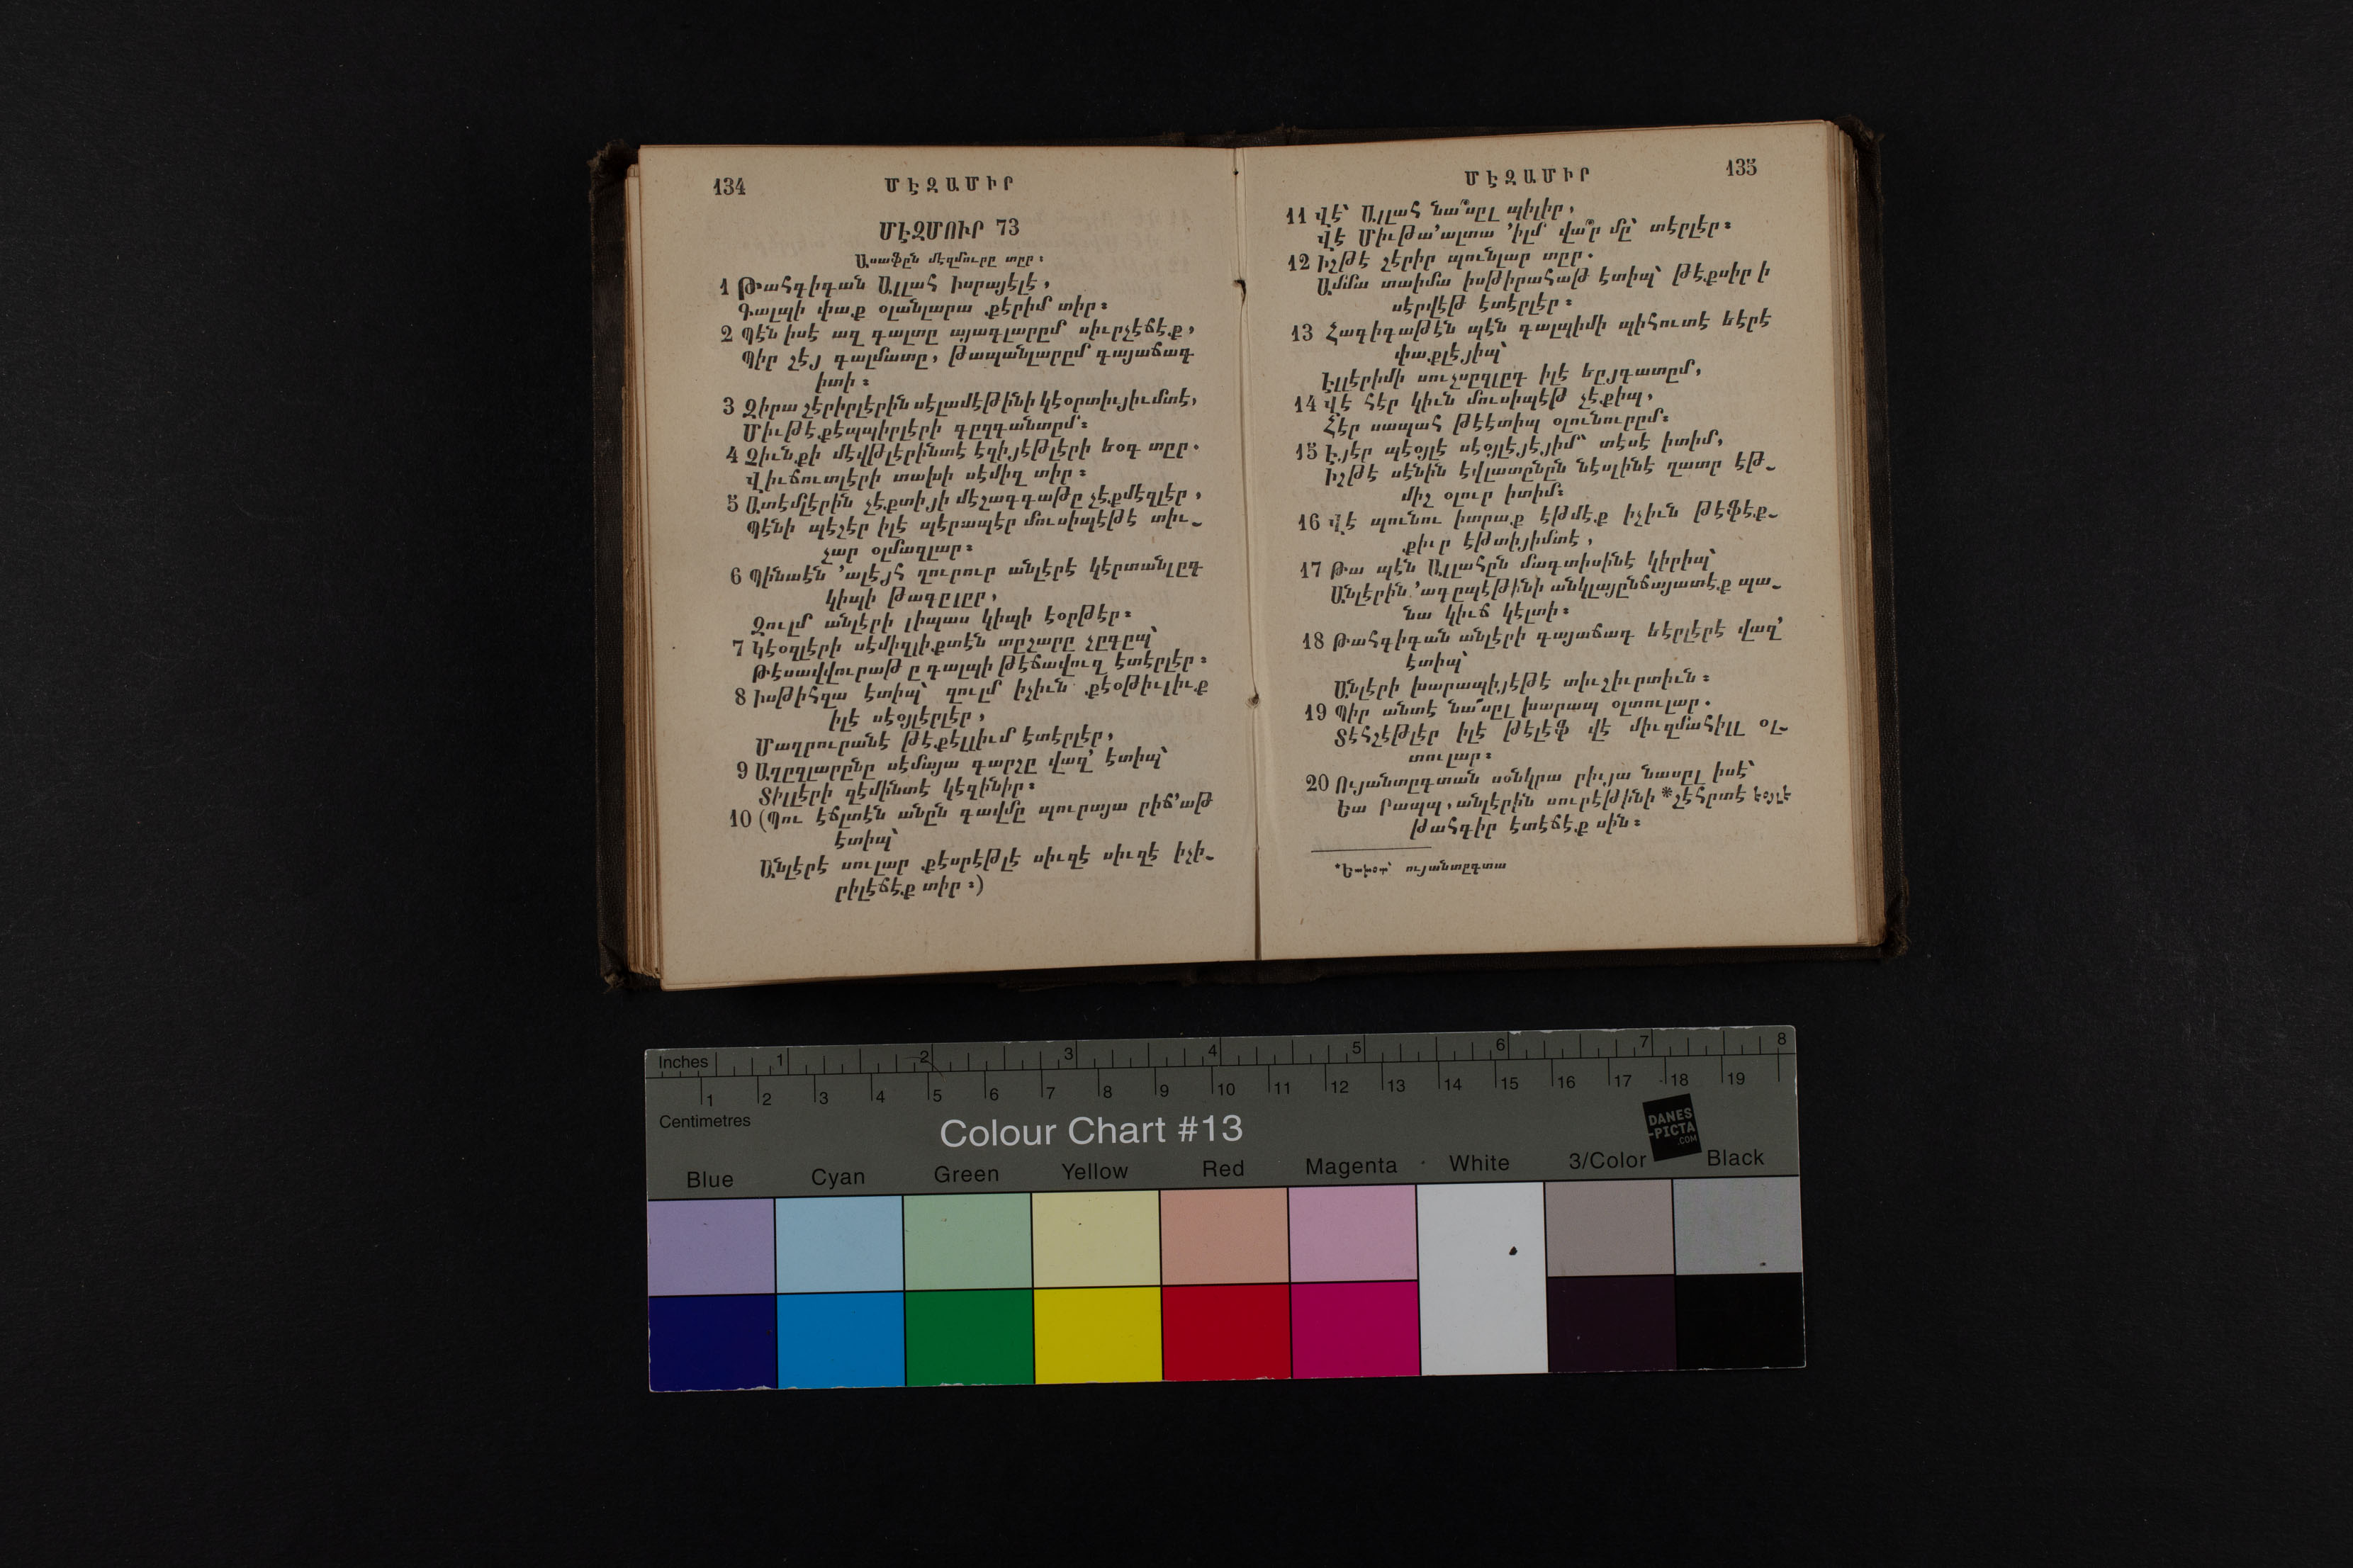 134
ՄԷԶԱՄԻՐ
ՄԷԶՄՈՒՐ 73
Ասաֆըն մէզմուրը տըր։
1 Թահգիգան Ալլահ Իսրայէլէ,
Գալպի փաք օլանլարա քէրիմ տիր։
2 Պէն իսէ ազ գալտը այագլարըմ սիւրչէճէք,
Պիր շէյ գալմատը, թապանլարըմ գայաճագ
իտի։
3 Զիրա շէրիրլէրին սէլամէթինի կէօրտիւյիւմտէ,
Միւթէքէպպիրլէրի գըզգանտըմ։
4 Զիւնքի մէվթլէրինտէ էզիյէթլէրի եօգ տըր.
Վիւճուտլէրի տախի սէմիզ տիր։
5 Ատէմլէրին չէքտիյի մէշագգաթը չէքմէզլէր,
Պէնի պէշէր իլէ պէրապէր մուսիպէթէ տիւ-
չար օլմազլար։
6 Պինաէն ՚ալէյհ ղուրուր անլէրէ կէրտանլըգ
կիպի թագըլըր,
Զուլմ անլէրի լիպաս կիպի էօրթէր։
7 Կէօզլէրի սէմիզլիքտէն տըշարը չըգըպ՝
Թէսավվուրաթ ը գալպի թէճավուզ էտէրլէր։
8 Իսթիհզա էտիպ՝ զուլմ իչիւն քէօթիւլիւք
իլէ սէօյլէրլէր,
Մաղրուրանէ թէքէլլիւմ էտէրլէր,
9 Աղըզլարընը սէմայա գարշը վազ՚ էտիպ՝
Տիլլէրի զէմինտէ կէզինիր։
10 (Պու էճլտէն անըն գավմը պուրայա րիճ՚աթ
էտիպ՝
Անլէրէ սուլար քէսրէթլէ սիւզէ սիւզէ իչի-
րիլէճէք տիր։)
135
ՄԷԶԱՄԻՐ
11 Վէ՝ Ալլահ նա՞սըլ պիլիր,
Վէ Միւթա՚ալտա ՚իլմ վա՞ր մը՝ տէրլէր։
12 Իշթէ շէրիր պունլար տըր.
Ամմա տաիմա իսթիրահաթ էտիպ՝ թէքսիր ի
սէրվէթ էտէրլէր։
13 Հագիգաթէն պէն գալպիմի պիհուտէ եէրէ
փաքլէյիպ՝
Էլլէրիմի սուչսըզլըգ իլէ եըյգատըմ,
14 Վէ հէր կիւն մուսիպէթ չէքիպ,
Հէր սապահ թէէտիպ օլունուրըմ։
15 Էյէր պէօյլէ սէօյլէյէյիմ՝ տէսէ իտիմ,
Իշթէ սէնին էվլատընըն նէսլինէ ղատր էթ-
միշ օլուր իտիմ։
16 Վէ պունու իտրաք էթմէք իչիւն թէֆէք-
քիւր էթտիյիմտէ,
17 Թա պէն Ալլահըն մագտիսինէ կիրիպ՝
Անլէրին ՚ագըպէթինի անկլայընճայատէք պա-
նա կիւճ կէլտի։
18 Թահգիգան անլէրի գայաճագ եէրլէրէ վազ՚
էտիպ՝
Անլէրի խարապիյէթէ տիւշիւրտիւն։
19 Պիր անտէ նա՞սըլ խարապ օլտուլար.
Տէհշէթլէր իլէ թէլէֆ վէ միւզմահիլլ օլ-
տուլար։
20 Ույանտըգտան սօնկրա րիւյա նասըլ իսէ՝
Եա Րապպ, անլէրին սուրէթինի *շէհրտէ էօյլէ
թահգիր էտէճէք սին։
*Եախօտ՝ ույանտըգտա
Inches 1 2 3 4 5 6 7 8
1 2 3 4 5 6 7 8 9 10 11 12 13 14 15 16 17 18 19
Centimetres
Colour Chart #13
DANES
-PICTA
.COM
Blue Cyan Green Yellow Red Magenta White 3/Color Black